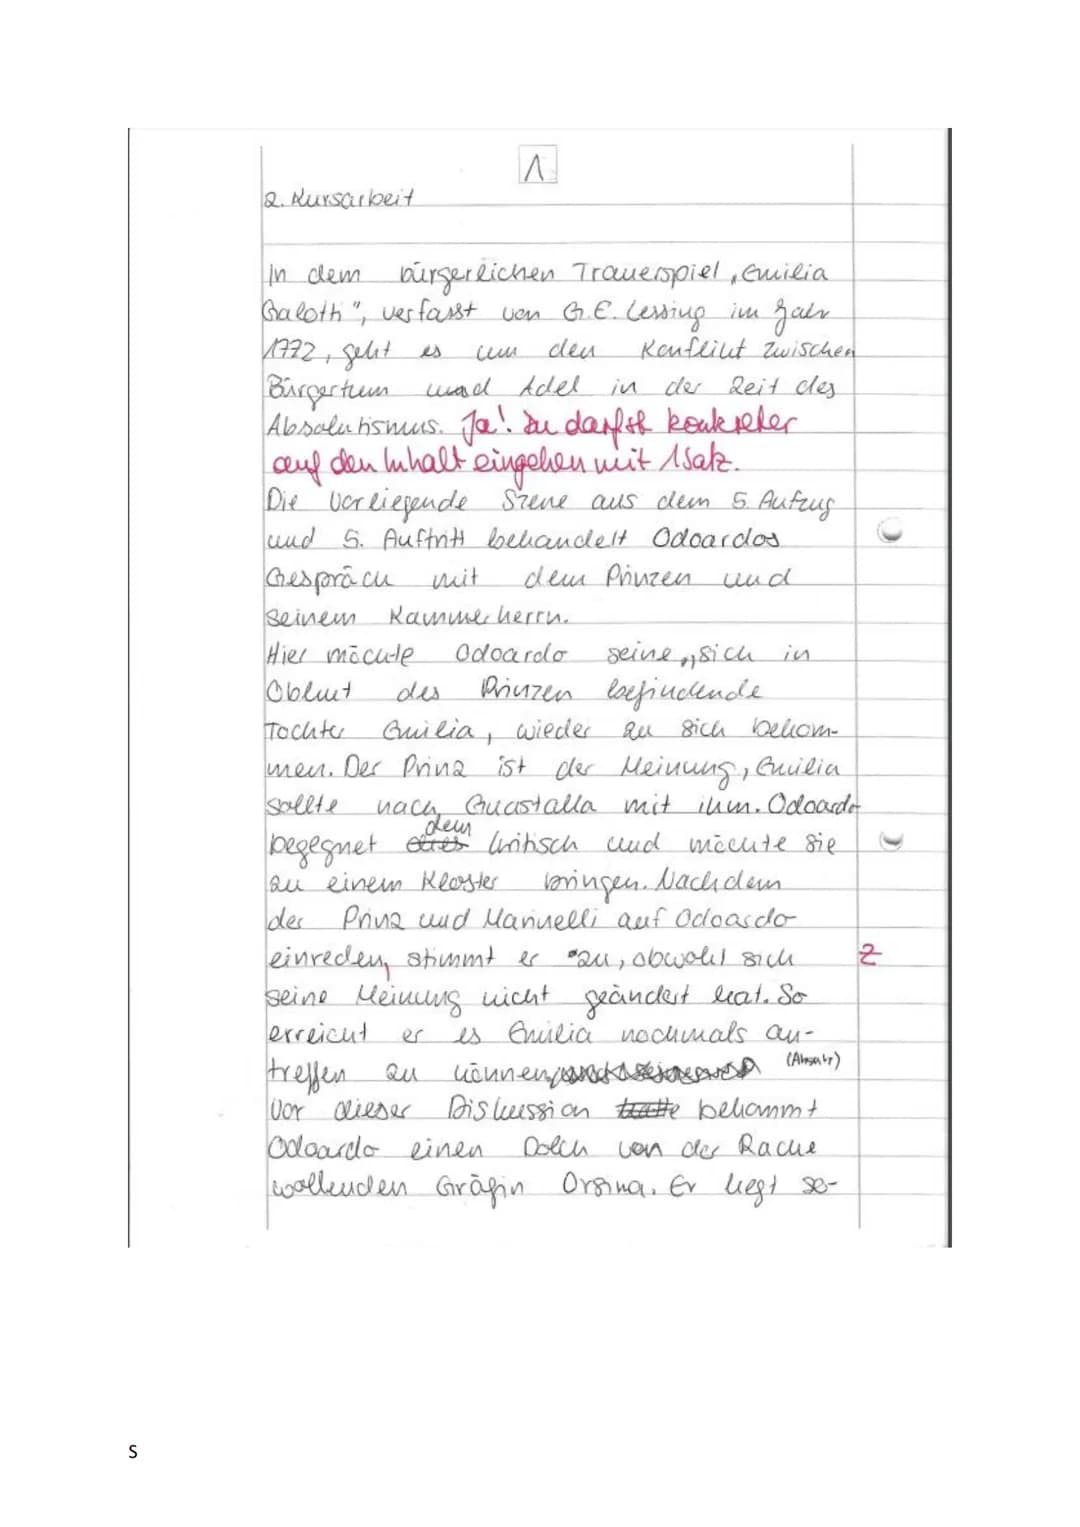 1
2. Kursarbeit
In dem bürgerlichen Trauerspiel „Emilia
Galotti", verfasst von G.E. Lessing im Jahr
1772, geht es um den Konflikt zwischen
Bürgertum und Adel in der Zeit des
Absolutismus. Ja! Du darfst konkreter
auf den Inhalt eingehen mit 1 Satz.
Die vorliegende Szene aus dem 5. Aufzug
und 5. Auftritt behandelt Odoardos
Gespräch mit dem Prinzen und
seinem Kammerherrn.
Hier möchte Odoardo seine, sich in
Obhut des Prinzen befindende
Tochter Emilia, wieder zu sich bekom-
men. Der Prinz ist der Meinung, Emilia
sollte nach Guastalla mit ihm. Odoardo
dem
begegnet kritisch und möchte sie
zu einem Kloster bringen. Nachdem
der Prinz und Marinelli auf Odoardo
einreden, stimmt er zu, obwohl sich Z
seine Meinung nicht geändert hat. So
erreicht er es Emilia nochmals an-
treffen zu können (Absatz)
Vor dieser Diskussion hatte bekommt
Odoardo einen Dolch von der Rache
wollenden Gräfin Orsina. Er hegt so-
S